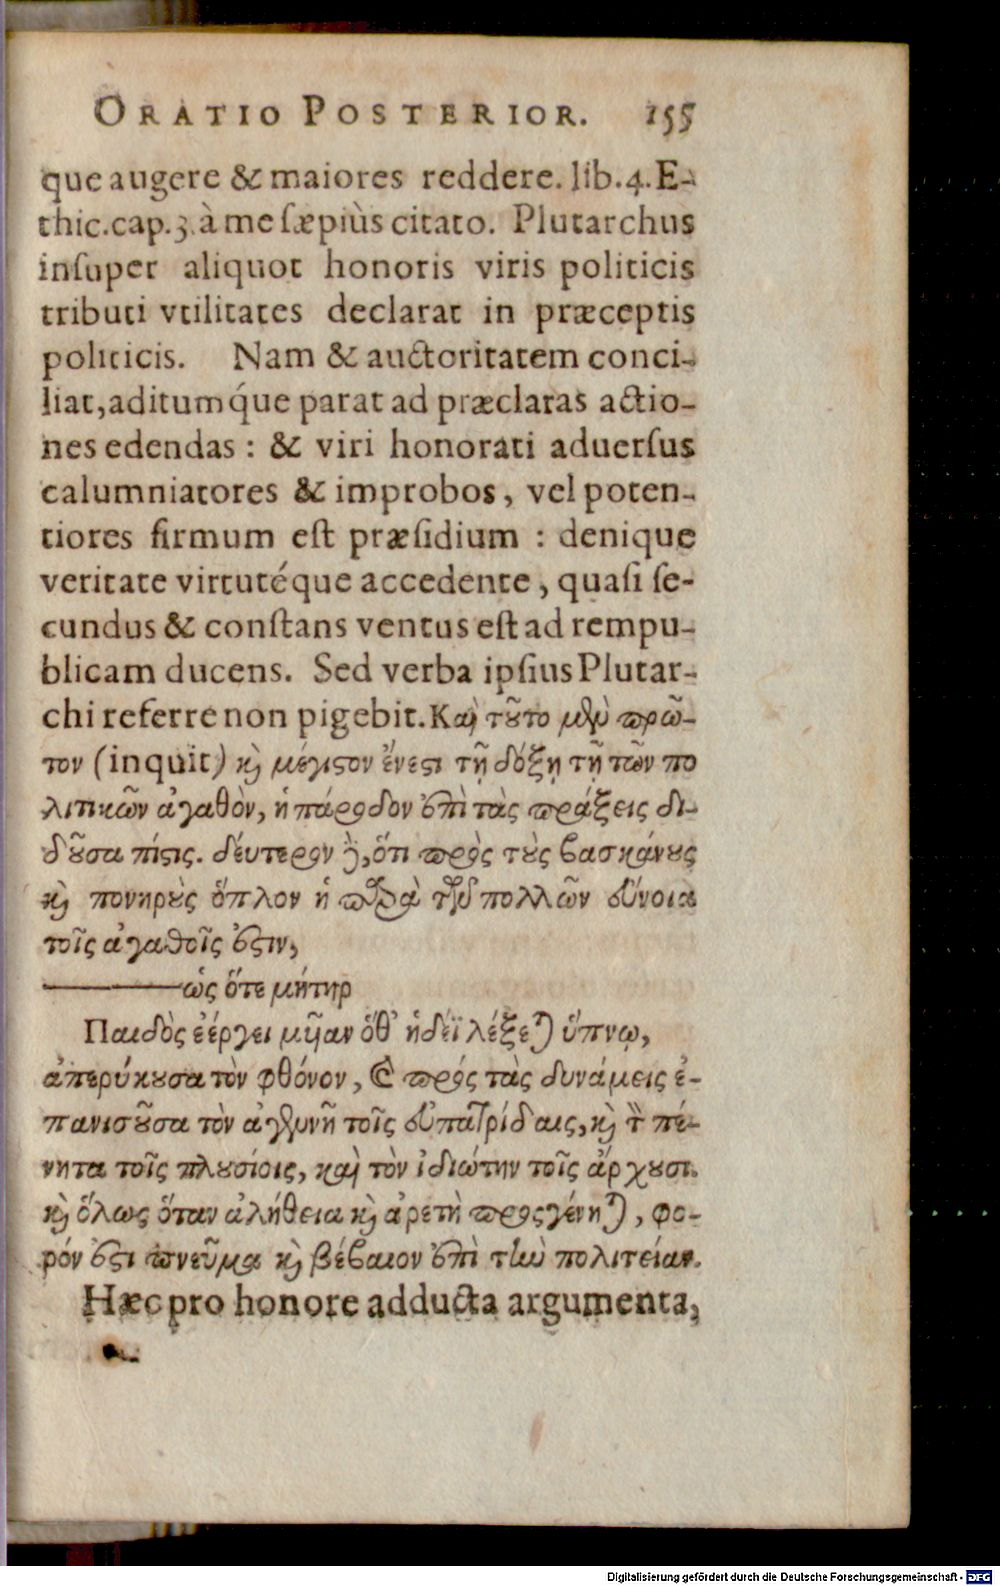 ORATIO POSTERIOR. 155
que augere & maiores reddere. lib.4.E-
thic.cap.3.à me ſæpiùs citato. Plutarchus
inſuper aliquot honoris viris politicis
tributi vtilitates declarat in præceptis
politicis. Nam & auctoritatem conci-
liat,aditumq́ue parat ad præclaras actio-
nes edendas : & viri honorati aduerſus
calumniatores & improbos, vel poten-
tiores firmum eſt præſidium : denique
veritate virtutéque accedente, quaſi ſe-
cundus & conſtans ventus eſt ad rempu-
blicam ducens. Sed verba ipſius Plutar-
chi referre non pigebit. Καὶ τȣ̃το μὲν πρῶ-
τον (inquit) ϗ̀ μέγιϛον ἔνεϛι τῇ δόξῃ τῇ τῶν πο
λιτικῶν ἀγαθὸν, ἡ πάροδον ἐπὶ τὰς πράξεις δι-
δȣ͂σα πίϛις. δεύτερον δὲ, ὅτι πρὸς τȣ̀ς βασκάνȣς
ϗ̀ πονηρȣ̀ς ὅπλον ἡ παρὰ τῶν πολλῶν εὔνοια
τοῖς ἀγαθοῖς ἐϛιν,
———ὡς ὅτε μήτηρ
Παιδὸς ἐέργει μῆαν ὅθ᾽ ἡδέϊ λέξεται ὕπνῳ,
ἀπερύκȣσα τὸν φθόνον, & πρός τὰς δυνάμεις ἐ-
πανισȣ͂σα τὸν ἀγεννῆ τοῖς εὐπατρίδαις, ϗ̀ τὸν πέ-
νητα τοῖς πλȣσίοις, καὶ τὸν ἰδιώτην τοῖς ἄρχȣσι.
ϗ̀ ὅλως ὅταν ἀλήθεια ϗ̀ ἀρετὴ προςγένηται, φο-
ρόν ἐϛι πνεῦμα ϗ̀ βέβαιον ἐπὶ τὴν πολιτείαν.
Hæc pro honore adducta argumenta,
Digitalisierung gefördert durch die Deutsche Forschungsgemeinschaft - DFG